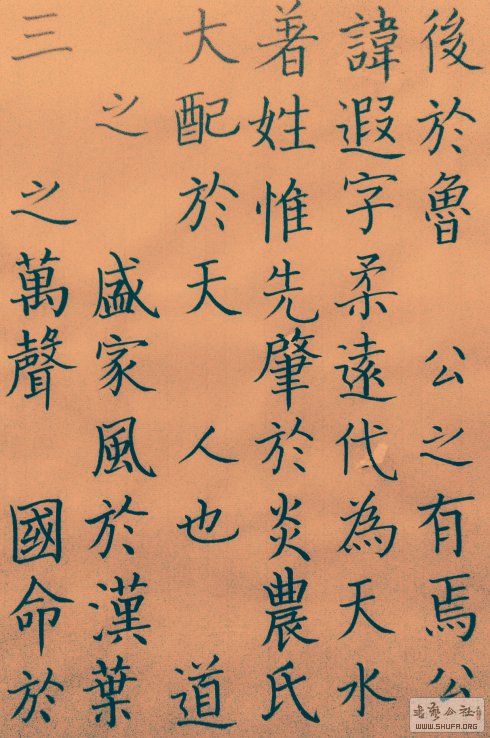 後於魯 公之有焉公
諱遐字柔遠代為天水
著姓惟先肇於炎農氏
大配於天 人也 道
之 盛家風於漢葉
三 之萬聲 國命於
書藝公社
WWW.SHUFA.ORG